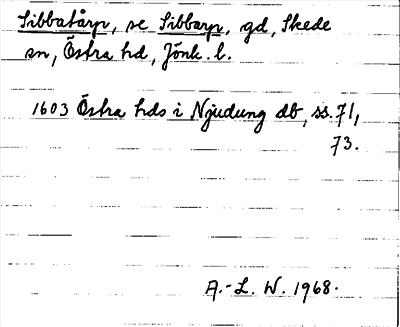 Sibbatårp, se Sibbarp, gd, Skede
sn, Östra hd, Jönk. l.
1603 Östra hds i Njudung db, ss. 71,
73.
A.-L. W. 1968.